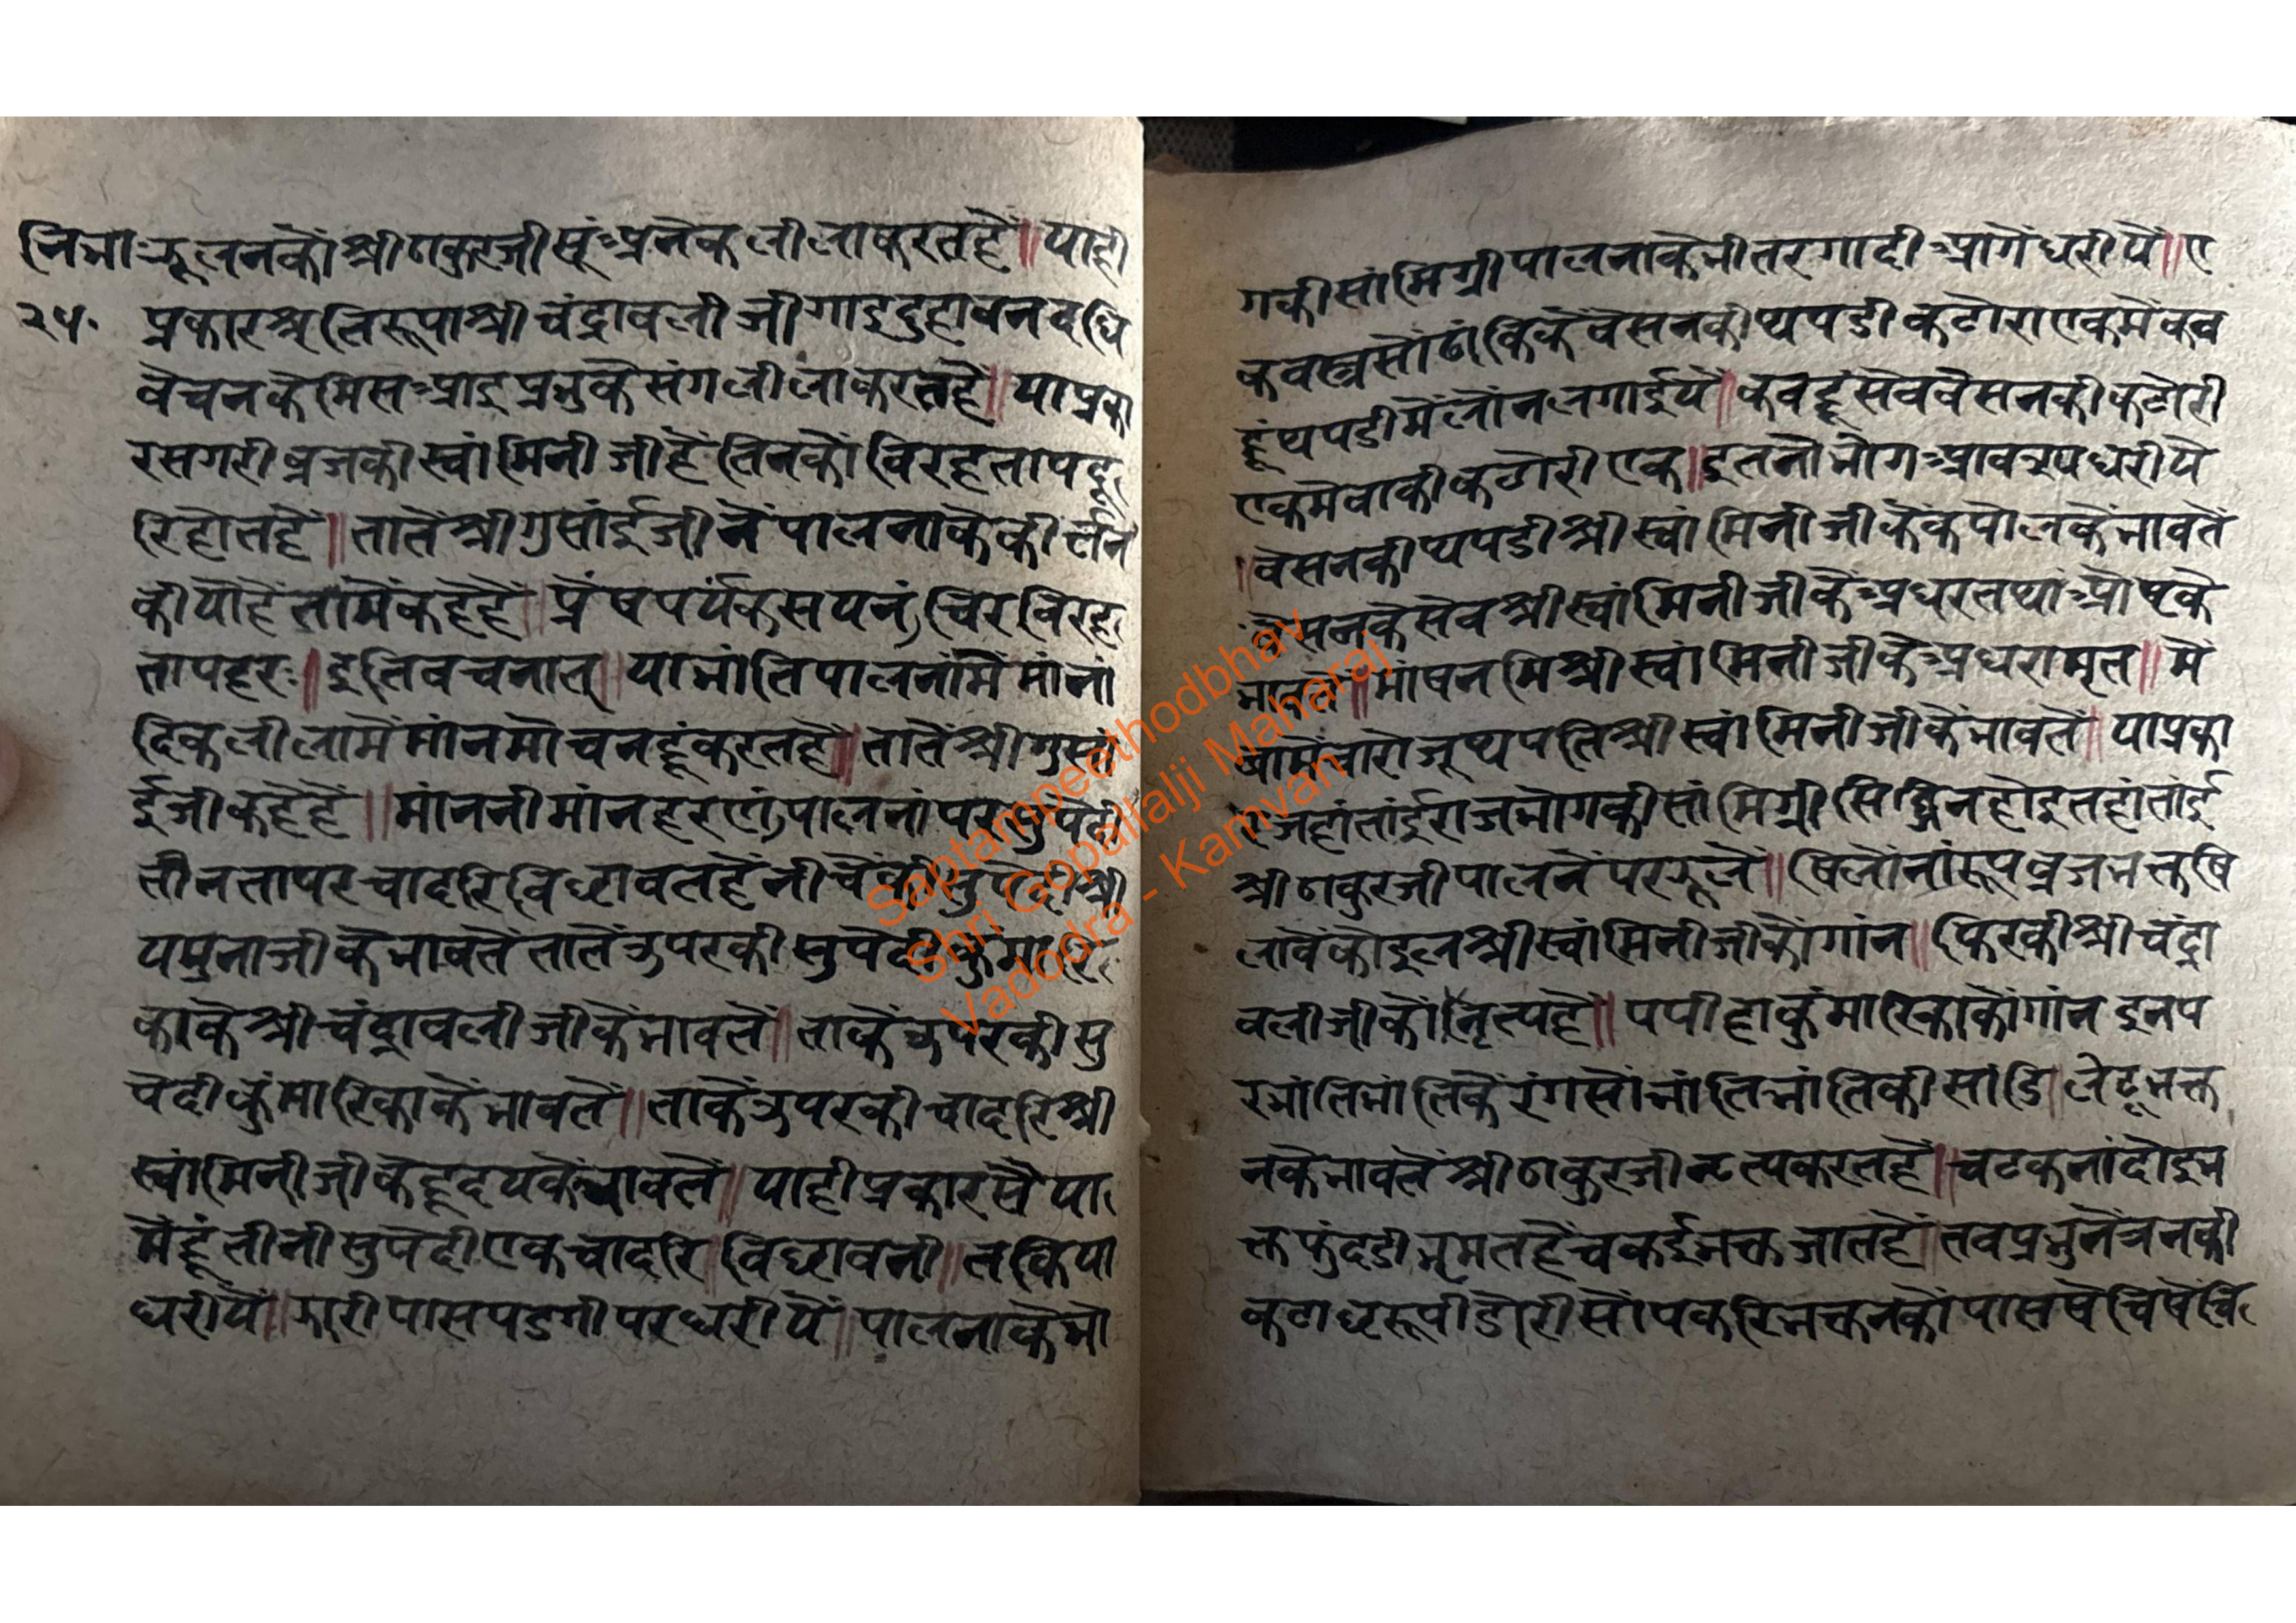 निभा झूलनकौं श्रीठाकुरजीसूं अनेकलीलाकरतहैं॥ याही
२५. प्रकारश्रुतिरूपाश्रीचंद्रावलीजीगाइदुहावनदधि
वेचनकेमिसआइप्रभुकेसंगलीलाकरतहै॥ याप्रका
रसगरीव्रजकीस्वांमिनीजीहैंतिनकौंविरहतापदू
रिहोतहैं॥ तातेंश्रीगुसांईजीनेंपालनाकेकीर्त्तन
कीयोहैतामैंकहेहैं॥ प्रेंषपर्यंकसयनं चिरविरह
तापहर॥ इतिवचनात्॥ याभांतिपालनांमेंमांनां
दिकलीलामेंमांनमोचनहूंकरतहै॥ तातेंश्रीगुसां
ईजीकहेहैं॥ मांननीमांनहरणं पालनांपरसुपेदी
तीनतापरचादरिविछावतहैंनीचेकीसुपेदीश्री
यमुनाजीकेभावतेंतातेंऊपरकीसुपेदीकुंमारि
काकेश्रीचंद्रावलीजीकेंभावतें॥ ताकेंऊपरकीसु
पेदीकुंमारिकाकेंभावतें॥ ताकेंऊपरकीचादरिश्री
स्वांमिनीजीकेहृदयकेभावतें॥ याहीप्रकारसेया
मेंहूंतीनीसुपेदीएकचादरि॥ विछावनी॥ तकिया
धरीयें॥ झारीपासपडगीपरधरीयें॥ पालनाकेभो
गकीसांमिग्रीपालनाकेभीतरगादीआगेंधरीयें॥ ए
कवस्त्रसोंढांकिकेंवेसनकीथपडीकटोराएकमेंकव
हूंथपडीमेंलोंनलगाईयें॥ कवहूंसेववेसनकीकटोरी
एकमेवाकीकटोरीएक॥ इतनोभोगआवश्यधरीये
॥वेसनकीथपडीश्रीस्वांमिनीजीकेंकपोलकेंभावतें
वेसनकेसेवश्रीस्वांमिनीजीकेंअधरतथांओष्ठके
भावतें॥ माषनमिश्रीस्वांमिनीजीकेंअधरामृत॥ मे
वामेंचारोजूथपतिश्रीस्वांमिनीजीकेंभावतें॥ याप्रका
रजहांतांईराजभोगकीसांमिग्रीसिद्धिनहोइतहांतांई
श्रीठाकुरजीपालनेंपरझूलें॥ षिलोंनांरूपव्रजभक्तषि
लावेंकोइलश्रीस्वांमिनीजीकौंगांन॥ फिरकीश्रीचंद्रा
वलीजीकौंनृत्यहै॥ पपीहाकुंमारिकाकौंगांनइनप
रभांतिभांतिकेंरंगसोंभांतिभांतिकीसांडि॥ लेटूभक्त
नकेभावतेंश्रीठाकुरजीनृत्यकरतहैं॥ चटकनांदोइभ
क्तफुंदडीभ्रमतहैंचकईभक्तजातहैं॥ तवप्रभुनेत्रनकी
कटाछरूपीडोरीसोंपकरिभक्तनकौंपास